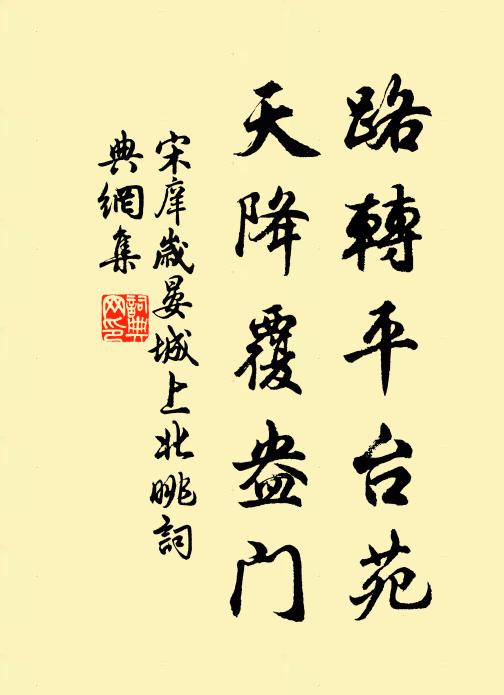 路轉平台苑
天降覆盎门
宋庠歲晏城上北眺詞
典網集
詞典
网印